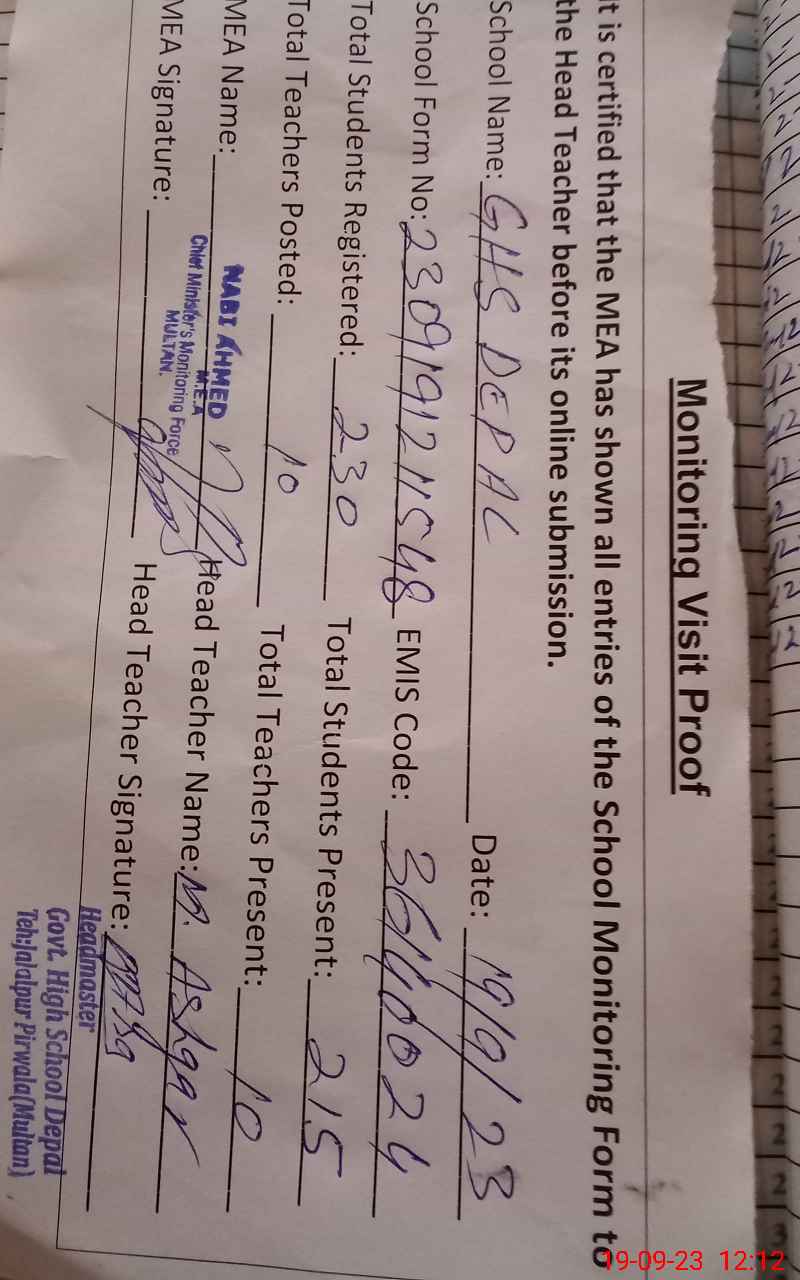 Monitoring Visit Proof
It is certified that the MEA has shown all entries of the School Monitoring Form to
the Head Teacher before its online submission.
School Name: GHS DEPAL Date: 19/9/23
School Form No: 2309191211548 EMIS Code: 36140024
Total Students Registered: 230 Total Students Present: 215
Total Teachers Posted: 10 Total Teachers Present: 10
MEA Name: NABI AHMED Head Teacher Name: M. Ashgar
M.E.A
Chief Minister's Monitoring Force
MULTAN.
MEA Signature: Head Teacher Signature:
Headmaster
Govt. High School Depal
Teh:Jalalpur Pirwala(Multan)
19-09-23 12:12